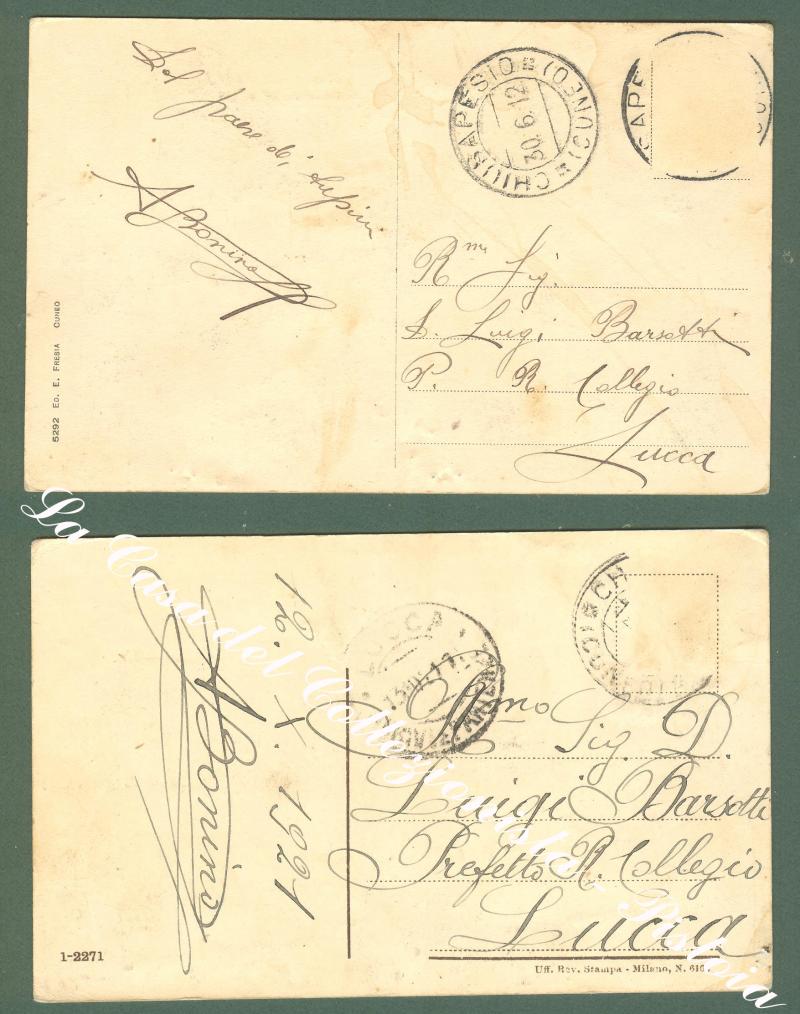 Dal
paese di
A Bonino
5292 ED. E. FRESIA CUNEO
CHIUSAPESIO (CUNEO)
30.6.12
SAPE
R.mo Sig.
D. Luigi Barsotti
P. R. Collegio
Lucca
La Casa del Collezionista - Pistoia
12. X. 1921
A Bonino
1-2271
LUCCA
R.mo Sig. D.
Luigi Barsotti
Prefetto R. Collegio
Lucca
Uff. Rev. Stampa - Milano, N. 616